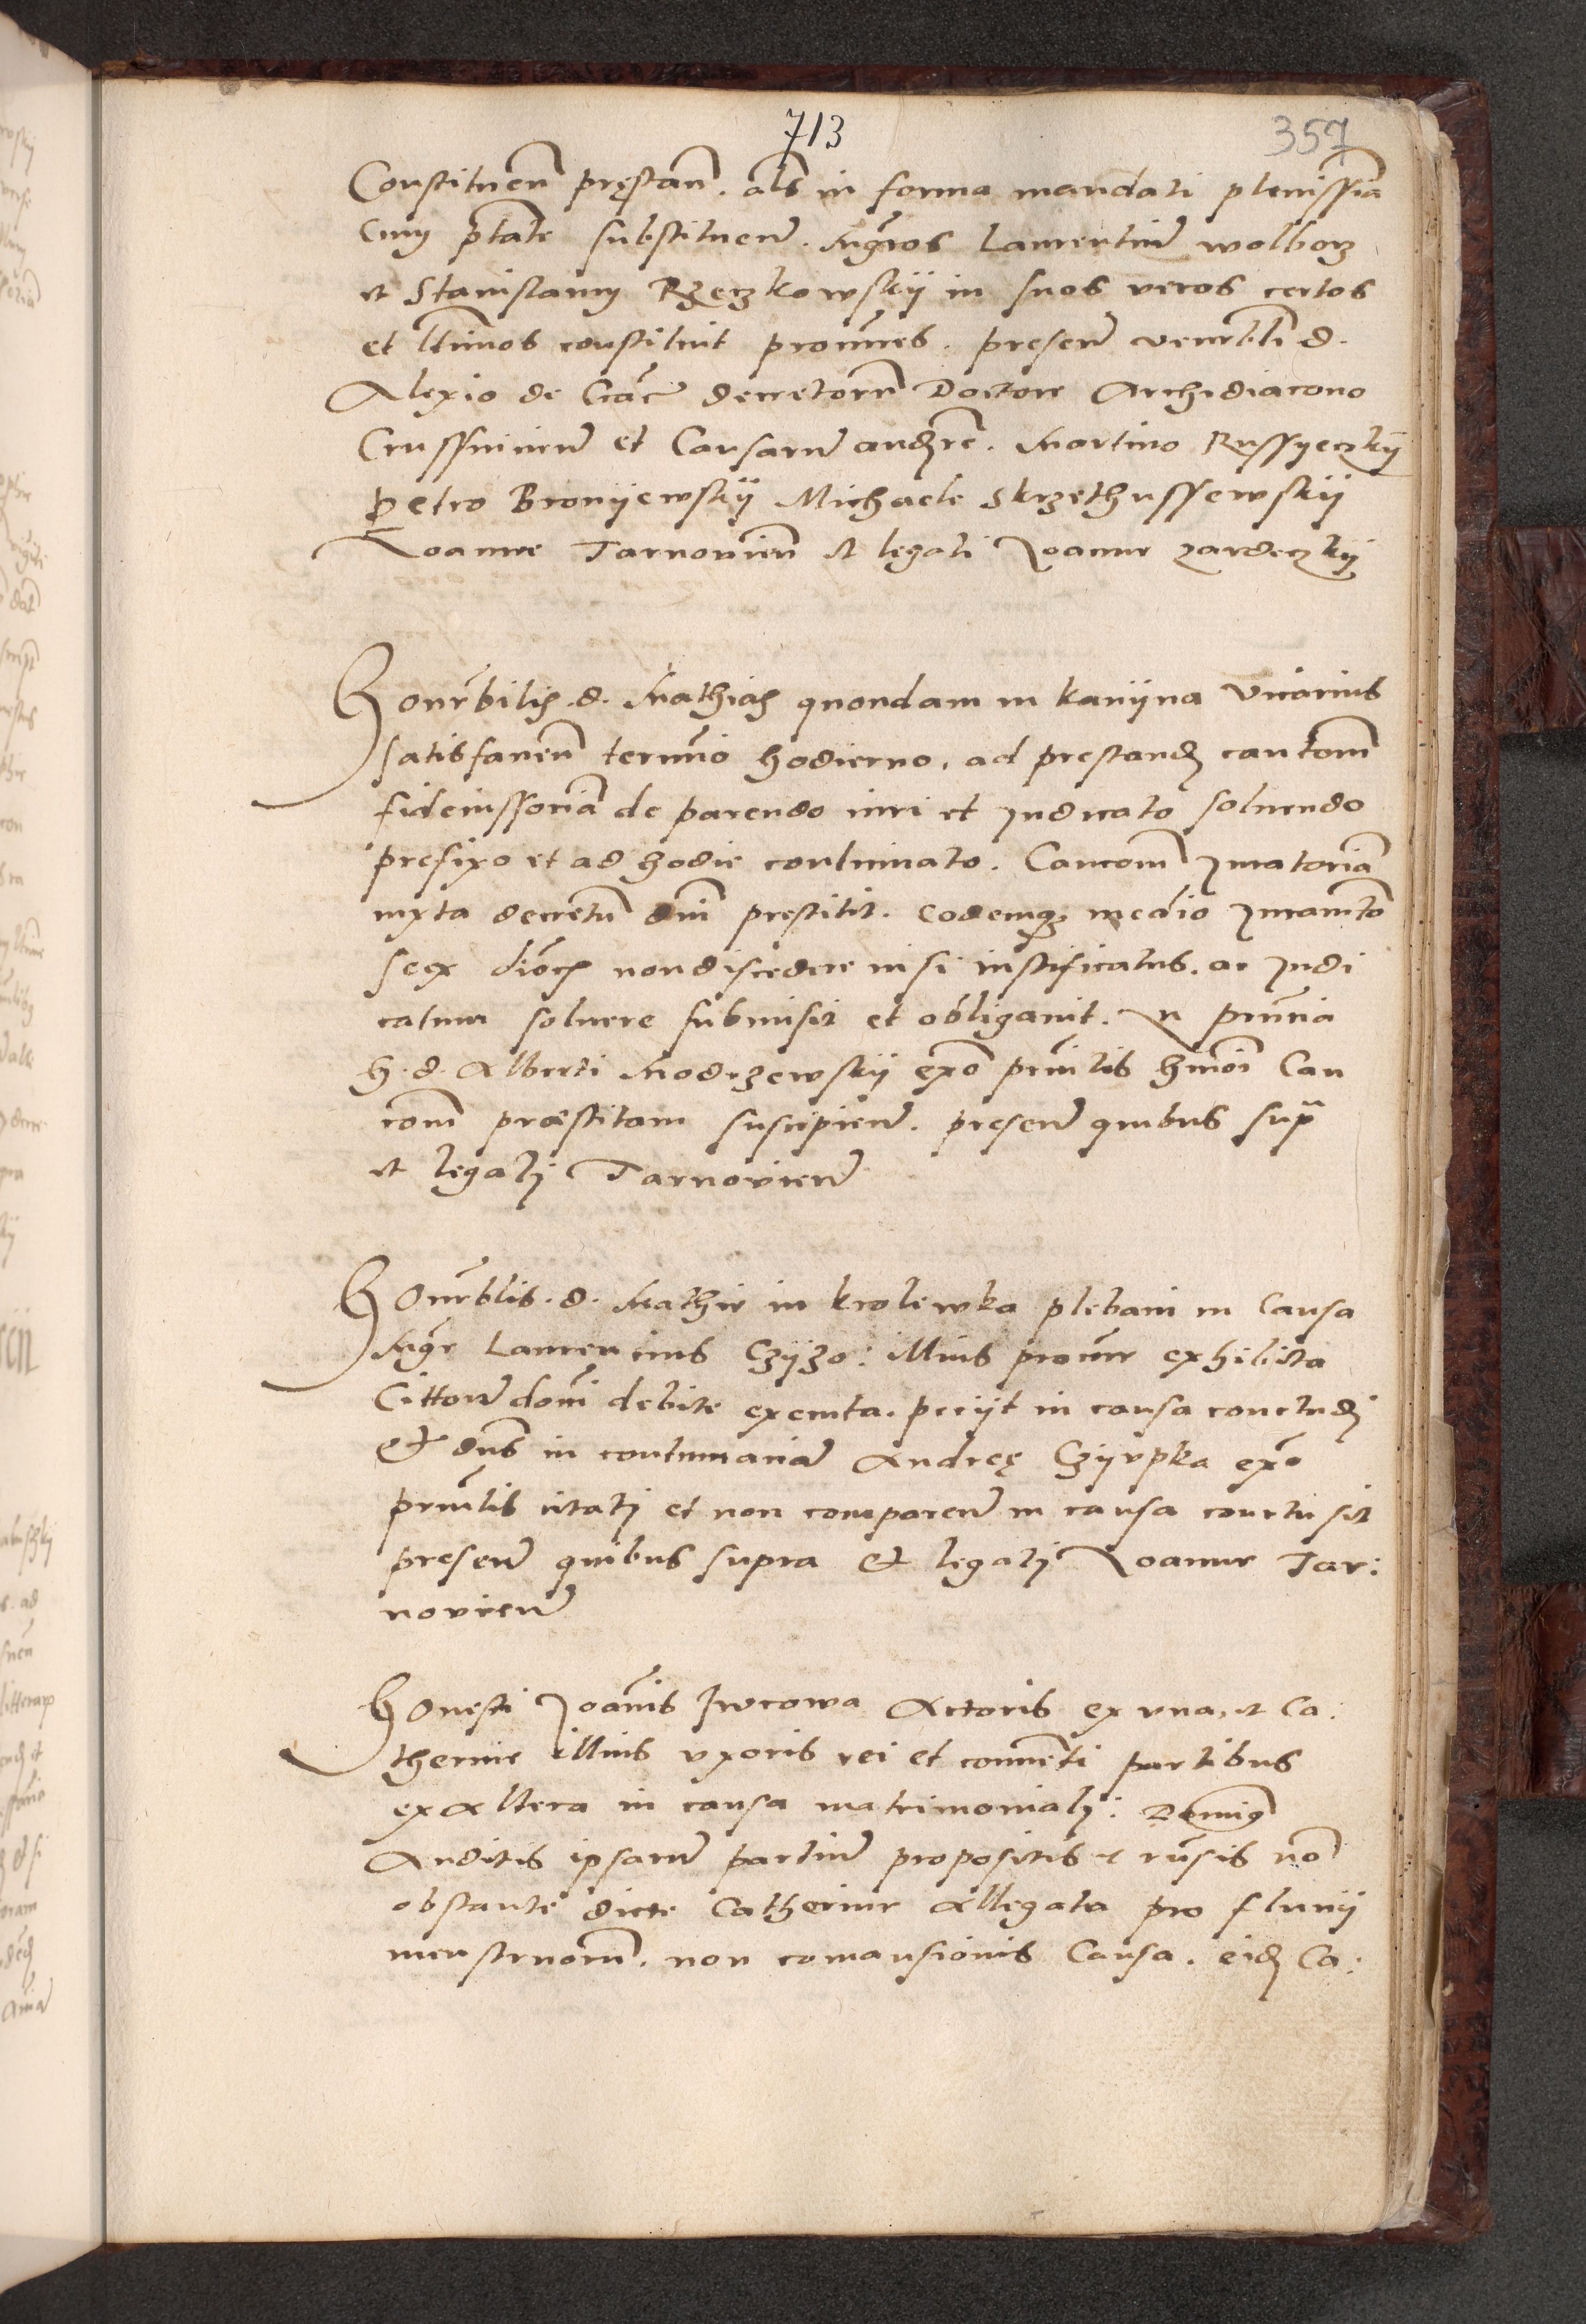 713
357
Constituen prestan. als in forma mandati plenissia
cum ptate substituen. Mgros Laurentiu wolborz
et Stanislaum Rzeczkowskij in suos veros certos
et ltimos constituit procures. presen venrbli d.
Alexio de Crac decretoru Doctore Archidiacono
Crussvicien et Causaru audre. Martino Russyeczkij
Petro Bronyewskij Michaele Skrzethussewskij
Ioanne Tarnovien et legali Ioanne zardeczkij
Honrbilis. d. Mathias quondam in kanyna Vicarius
satisfacien termino hodierno, ad prestand cautiom
fideiussoria de parendo iuri et Iudicato soluendo
prefixo et ad hodie continuato. Caucom Iuratoria
iuxta decretu dni prestitit. eodemq medio Iuramto
se ex dioc non discedere nisi iustificatus. ac Iudi
catum soluere submisit et obligauit. In pnria
h. d. Alberti Modrzewskij exo prncilis hmoi Cau
com præstitam suscipien. presen quibus supra
et legali Tarnovien
Honrblis. d. Mathie in krolewka plebani in Causa
Mgr Laurencius Czyzo: illius procur exhibita
Citton domi debite executa. peciit in causa concludi
Et dns in contumacia Andreę Czyrpka exo
prncilis citati et non comparen in causa conclusit
presen quibus supra Et legali Ioanne Tar:
novien
Honesti Ioanis Iwcowa Actoris ex una, et Ca:
therine illius uxoris rei et conuenti partibus
ex Altera in causa matrimoniali: Domiq
Auditis ipsaru partiu propositis et rusis no
obstante dicte Catherine Allegata pro fluxij
menstruoru. non comansionis Causa. eid Ca: